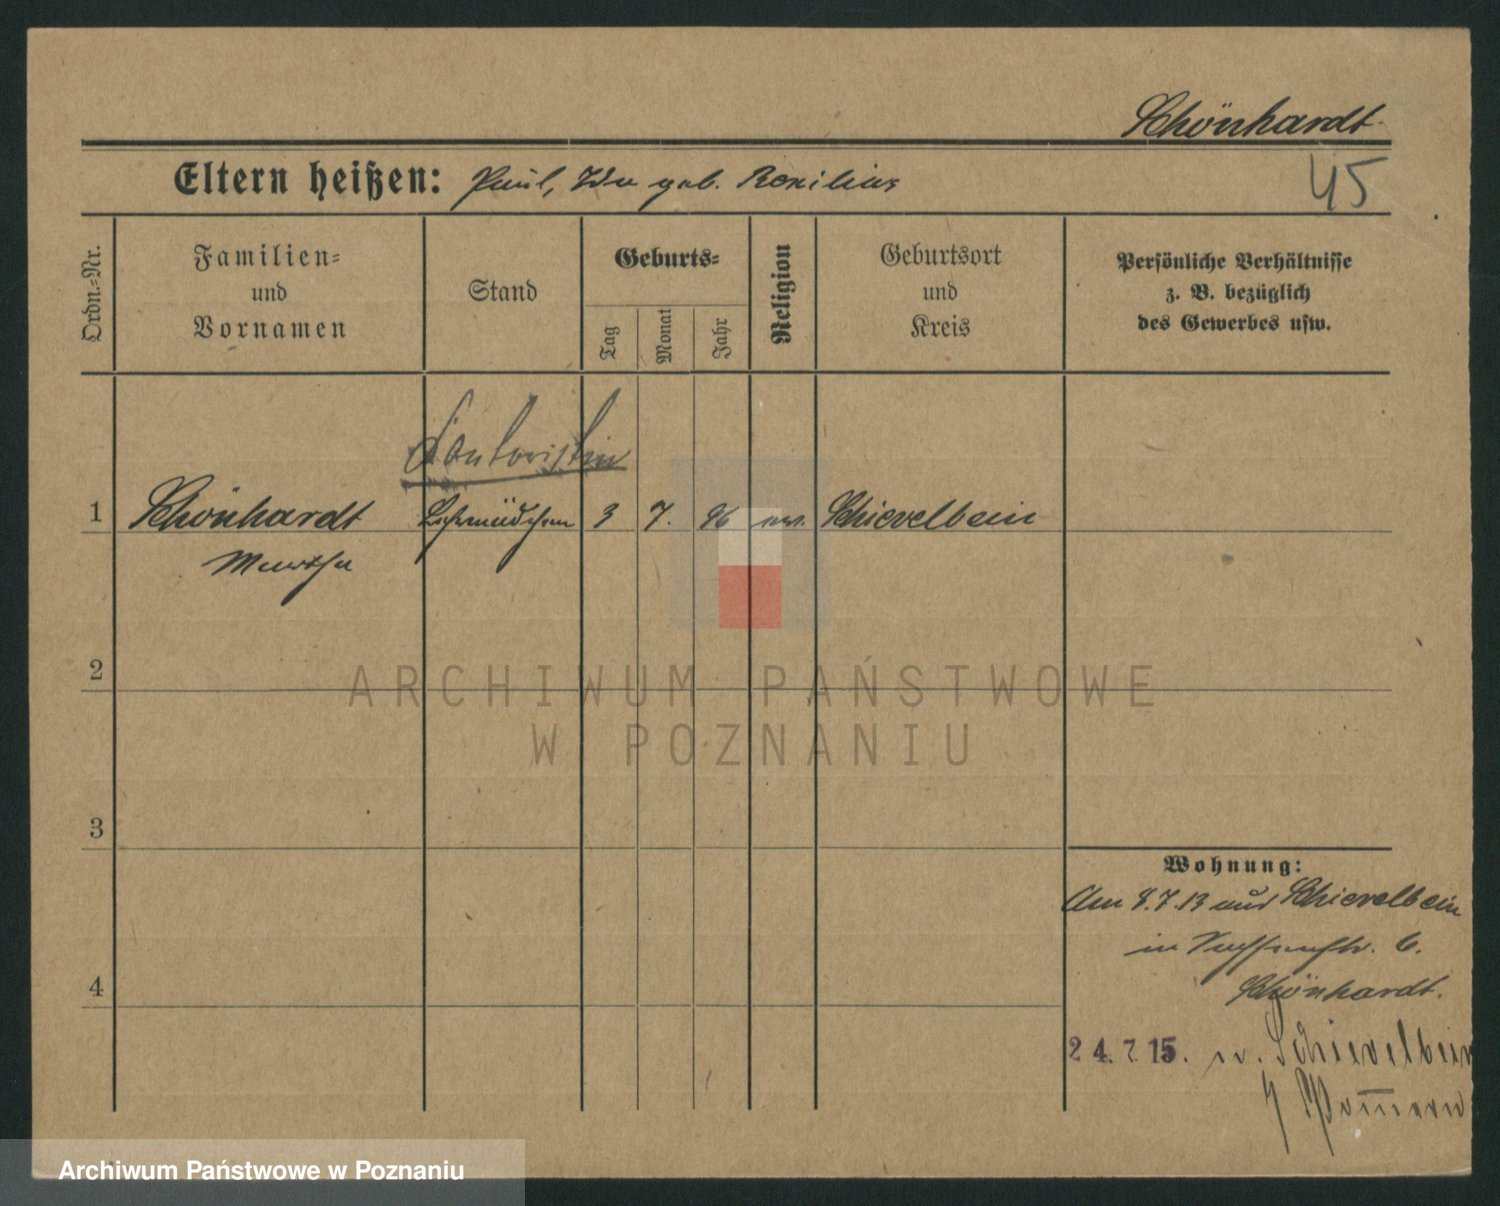 Schönhardt
Eltern heißen: Paul, Ida geb. Boxilius
45
Ordn.-Nr.
Familien-
und
Vornamen
Stand
Geburts-
Tag
Monat
Jahr
Religion
Geburtsort
und
Kreis
Persönliche Verhältnisse
z. B. bezüglich
des Gewerbes usw.
Kontoristin
1 Schönhardt Lehrmädchen 3 7. 96 ev. Schievelbein
Martha
2
ARCHIWUM PAŃSTWOWE
W POZNANIU
3
Wohnung:
Am 8.7.13 aus Schievelbein
in 6.
Schönhardt.
4
24.7.15. n. Schievelbein
i/ Pommern
Archiwum Państwowe w Poznaniu